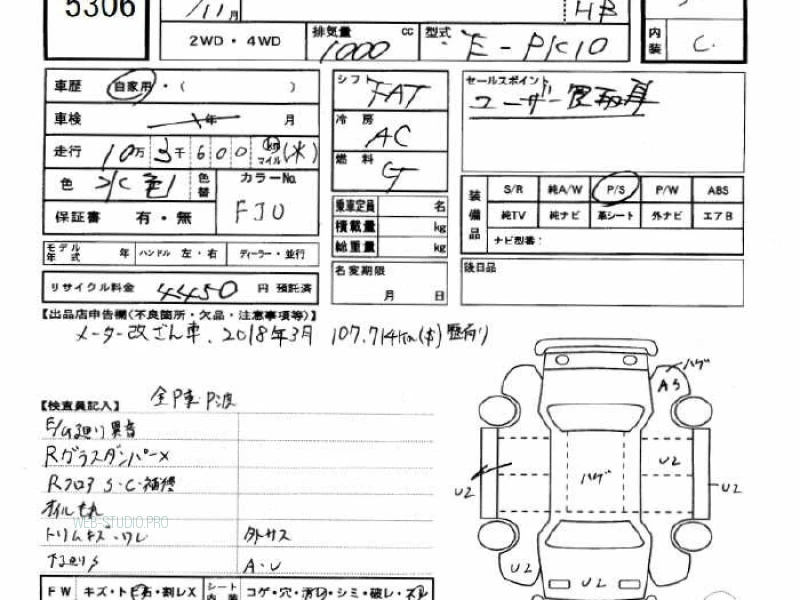 5306
11月
HB
2WD・4WD
排気量 1000 cc
型式 E-PK10
内装 C
車歴 自家用・( )
シフト FAT
セールスポイント
ユーザー買取車
車検 年 月
冷房 AC
走行 10万 3千 600 km マイル (米)
燃料 G
色 水色 色替
カラーNo. FJU
装備品 S/R 純A/W P/S P/W ABS
純TV 純ナビ 革シート 外ナビ エアB
ナビ型番:
保証書 有・無
乗車定員 名
積載量 kg
総重量 kg
モデル年式 年 ハンドル 左・右 ディーラー・並行
名変期限 月 日
後日品
リサイクル料金 4450 円 預託済
【出品店申告欄(不良箇所・欠品・注意事項等)】
メーター改ざん車、2018年3月 107,714km
【検査員記入】
E/G廻り異音
Rグラスダンパー×
Rフロア S・C・補修
オイルもれ
WEB-STUDIO.PRO
トリムキズ・ワレ
外サス
下廻りS
A・U
ハゲ
A3
U2
U2
U2
ハゲ
U2
U2
FW キズ・トビ石・割レX シート内装 コゲ・穴・汚レ・シミ・破レ・スレ